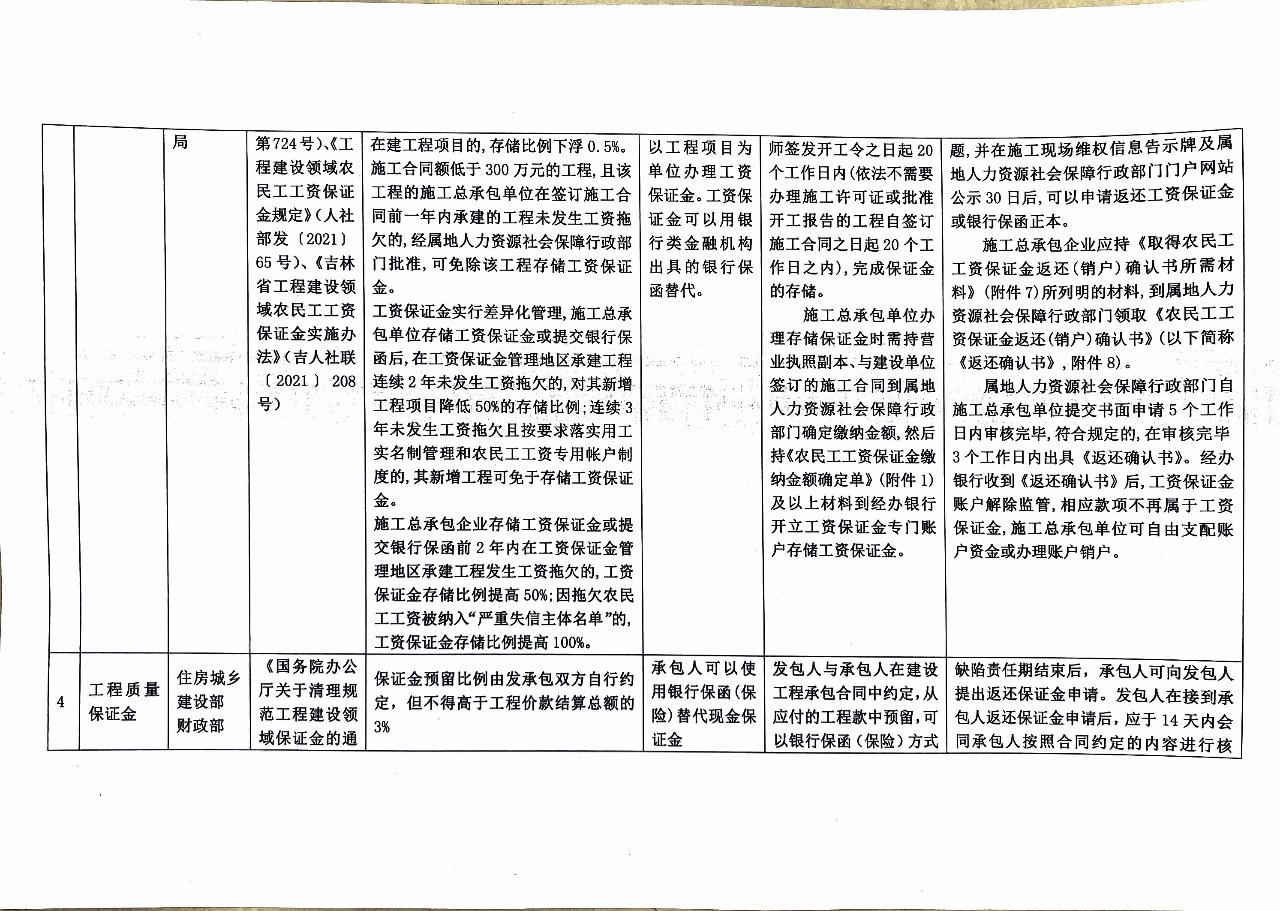 局
第724号)、《工
程建设领域农
民工工资保证
金规定》(人社
部发〔2021〕
65号)、《吉林
省工程建设领
域农民工工资
保证金实施办
法》(吉人社联
〔2021〕208
号)
在建工程项目的,存储比例下浮0.5%。
施工合同额低于300万元的工程,且该
工程的施工总承包单位在签订施工合
同前一年内承建的工程未发生工资拖
欠的,经属地人力资源社会保障行政部
门批准,可免除该工程存储工资保证
金。
工资保证金实行差异化管理,施工总承
包单位存储工资保证金或提交银行保
函后,在工资保证金管理地区承建工程
连续2年未发生工资拖欠的,对其新增
工程项目降低50%的存储比例;连续3
年未发生工资拖欠且按要求落实用工
实名制管理和农民工工资专用帐户制
度的,其新增工程可免于存储工资保证
金。
施工总承包企业存储工资保证金或提
交银行保函前2年内在工资保证金管
理地区承建工程发生工资拖欠的,工资
保证金存储比例提高50%;因拖欠农民
工工资被纳入“严重失信主体名单”的,
工资保证金存储比例提高100%。
以工程项目为
单位办理工资
保证金。工资保
证金可以用银
行类金融机构
出具的银行保
函替代。
师签发开工令之日起20
个工作日内(依法不需要
办理施工许可证或批准
开工报告的工程自签订
施工合同之日起20个工
作日之内),完成保证金
的存储。
施工总承包单位办
理存储保证金时需持营
业执照副本、与建设单位
签订的施工合同到属地
人力资源社会保障行政
部门确定缴纳金额,然后
持《农民工工资保证金缴
纳金额确定单》(附件1)
及以上材料到经办银行
开立工资保证金专门账
户存储工资保证金。
题,并在施工现场维权信息告示牌及属
地人力资源社会保障行政部门门户网站
公示30日后,可以申请返还工资保证金
或银行保函正本。
施工总承包企业应持《取得农民工
工资保证金返还(销户)确认书所需材
料》(附件7)所列明的材料,到属地人力
资源社会保障行政部门领取《农民工工
资保证金返还(销户)确认书》(以下简称
《返还确认书》,附件8)。
属地人力资源社会保障行政部门自
施工总承包单位提交书面申请5个工作
日内审核完毕,符合规定的,在审核完毕
3个工作日内出具《返还确认书》。经办
银行收到《返还确认书》后,工资保证金
账户解除监管,相应款项不再属于工资
保证金,施工总承包单位可自由支配账
户资金或办理账户销户。
4
工程质量
保证金
住房城乡
建设部
财政部
《国务院办公
厅关于清理规
范工程建设领
域保证金的通
保证金预留比例由发承包双方自行约
定，但不得高于工程价款结算总额的
3%
承包人可以使
用银行保函(保
险)替代现金保
证金
发包人与承包人在建设
工程承包合同中约定,从
应付的工程款中预留,可
以银行保函(保险)方式
缺陷责任期结束后，承包人可向发包人
提出返还保证金申请。发包人在接到承
包人返还保证金申请后，应于14天内会
同承包人按照合同约定的内容进行核